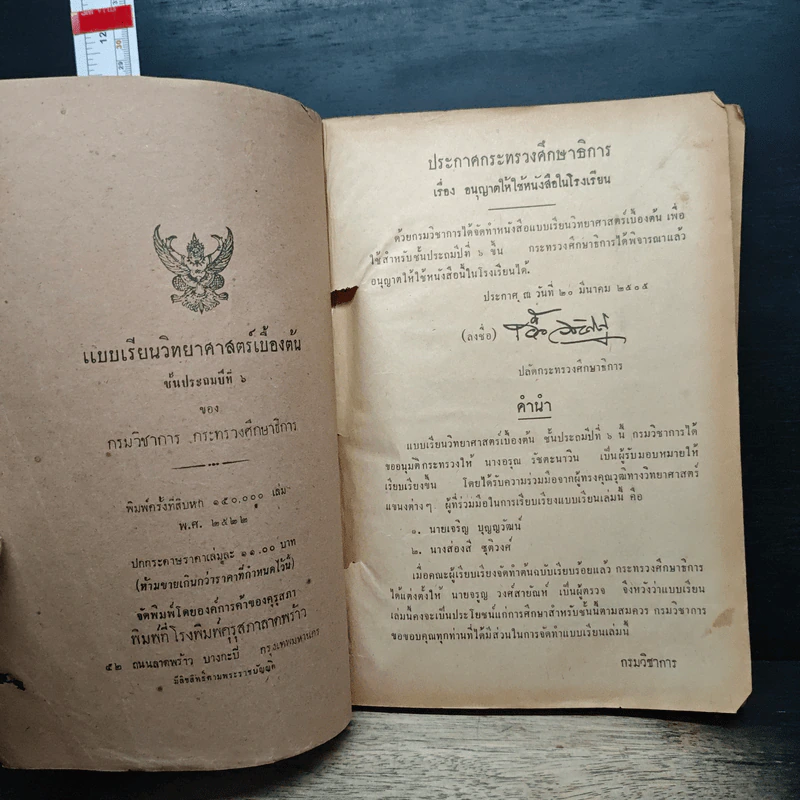 แบบเรียนวิทยาศาสตร์เบื้องต้น
ชั้นประถมปีที่ ๖
ของ
กรมวิชาการ กระทรวงศึกษาธิการ
พิมพ์ครั้งที่สิบหก ๑๕๐,๐๐๐ เล่ม
พ.ศ. ๒๕๒๒
ปกกระดาษราคาเล่มละ ๑๑.๐๐ บาท
(ห้ามขายเกินกว่าราคาที่กำหนดไว้นี้)
จัดพิมพ์โดยองค์การค้าของคุรุสภา
พิมพ์ที่โรงพิมพ์คุรุสภาลาดพร้าว
๕๒ ถนนลาดพร้าว บางกะปิ กรุงเทพมหานคร
มีลิขสิทธิ์ตามพระราชบัญญัติ
ประกาศกระทรวงศึกษาธิการ
เรื่อง อนุญาตให้ใช้หนังสือในโรงเรียน
ด้วยกรมวิชาการได้จัดทำหนังสือแบบเรียนวิทยาศาสตร์เบื้องต้น เพื่อ
ใช้สำหรับชั้นประถมปีที่ ๖ ขึ้น กระทรวงศึกษาธิการได้พิจารณาแล้ว
อนุญาตให้ใช้หนังสือนี้ในโรงเรียนได้.
ประกาศ ณ วันที่ ๒๐ มีนาคม ๒๕๐๕
(ลงชื่อ)
ปลัดกระทรวงศึกษาธิการ
คำนำ
แบบเรียนวิทยาศาสตร์เบื้องต้น ชั้นประถมปีที่ ๖ นี้ กรมวิชาการได้
ขออนุมัติกระทรวงให้ นางอรุณ รัชตะนาวิน เป็นผู้รับมอบหมายให้
เรียบเรียงขึ้น โดยได้รับความร่วมมือจากผู้ทรงคุณวุฒิทางวิทยาศาสตร์
แขนงต่างๆ ผู้ที่ร่วมมือในการเรียบเรียงแบบเรียนเล่มนี้ คือ
๑. นายเจริญ บุญญวัฒน์
๒. นางส่องสี ชุติวงศ์
เมื่อคณะผู้เรียบเรียงจัดทำต้นฉบับเรียบร้อยแล้ว กระทรวงศึกษาธิการ
ได้แต่งตั้งให้ นายจรูญ วงศ์สายัณห์ เป็นผู้ตรวจ จึงหวังว่าแบบเรียน
เล่มนี้คงจะเป็นประโยชน์แก่การศึกษาสำหรับชั้นนี้ตามสมควร กรมวิชาการ
ขอขอบคุณทุกท่านที่ได้มีส่วนในการจัดทำแบบเรียนเล่มนี้
กรมวิชาการ